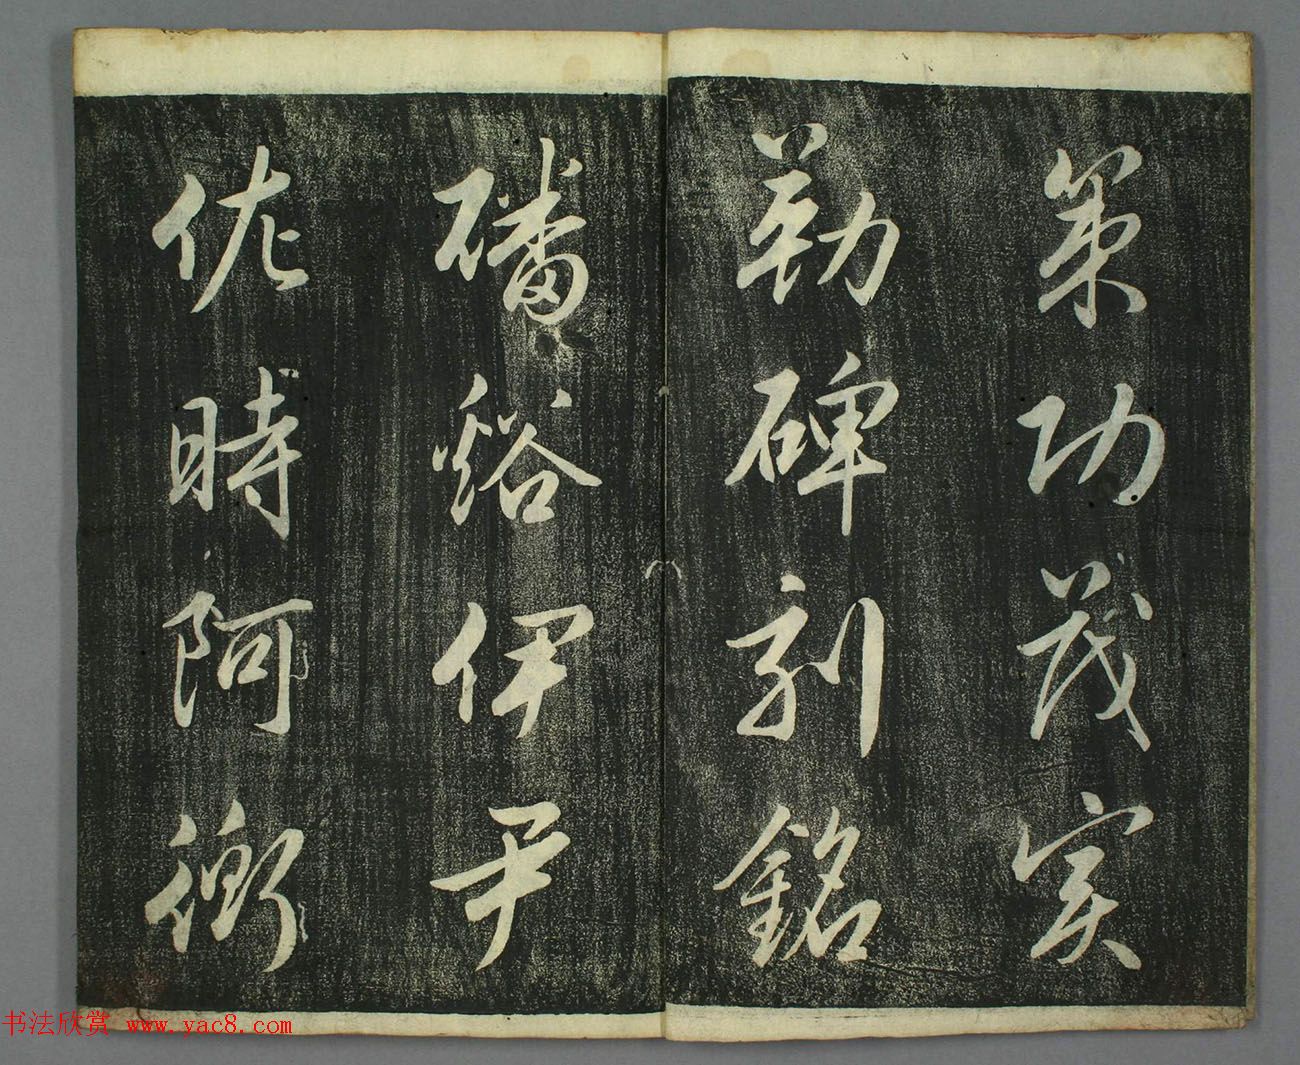 策功茂实
勒碑刻銘
磻谿伊尹
佐時阿衡
书法欣赏 www.yac8.com